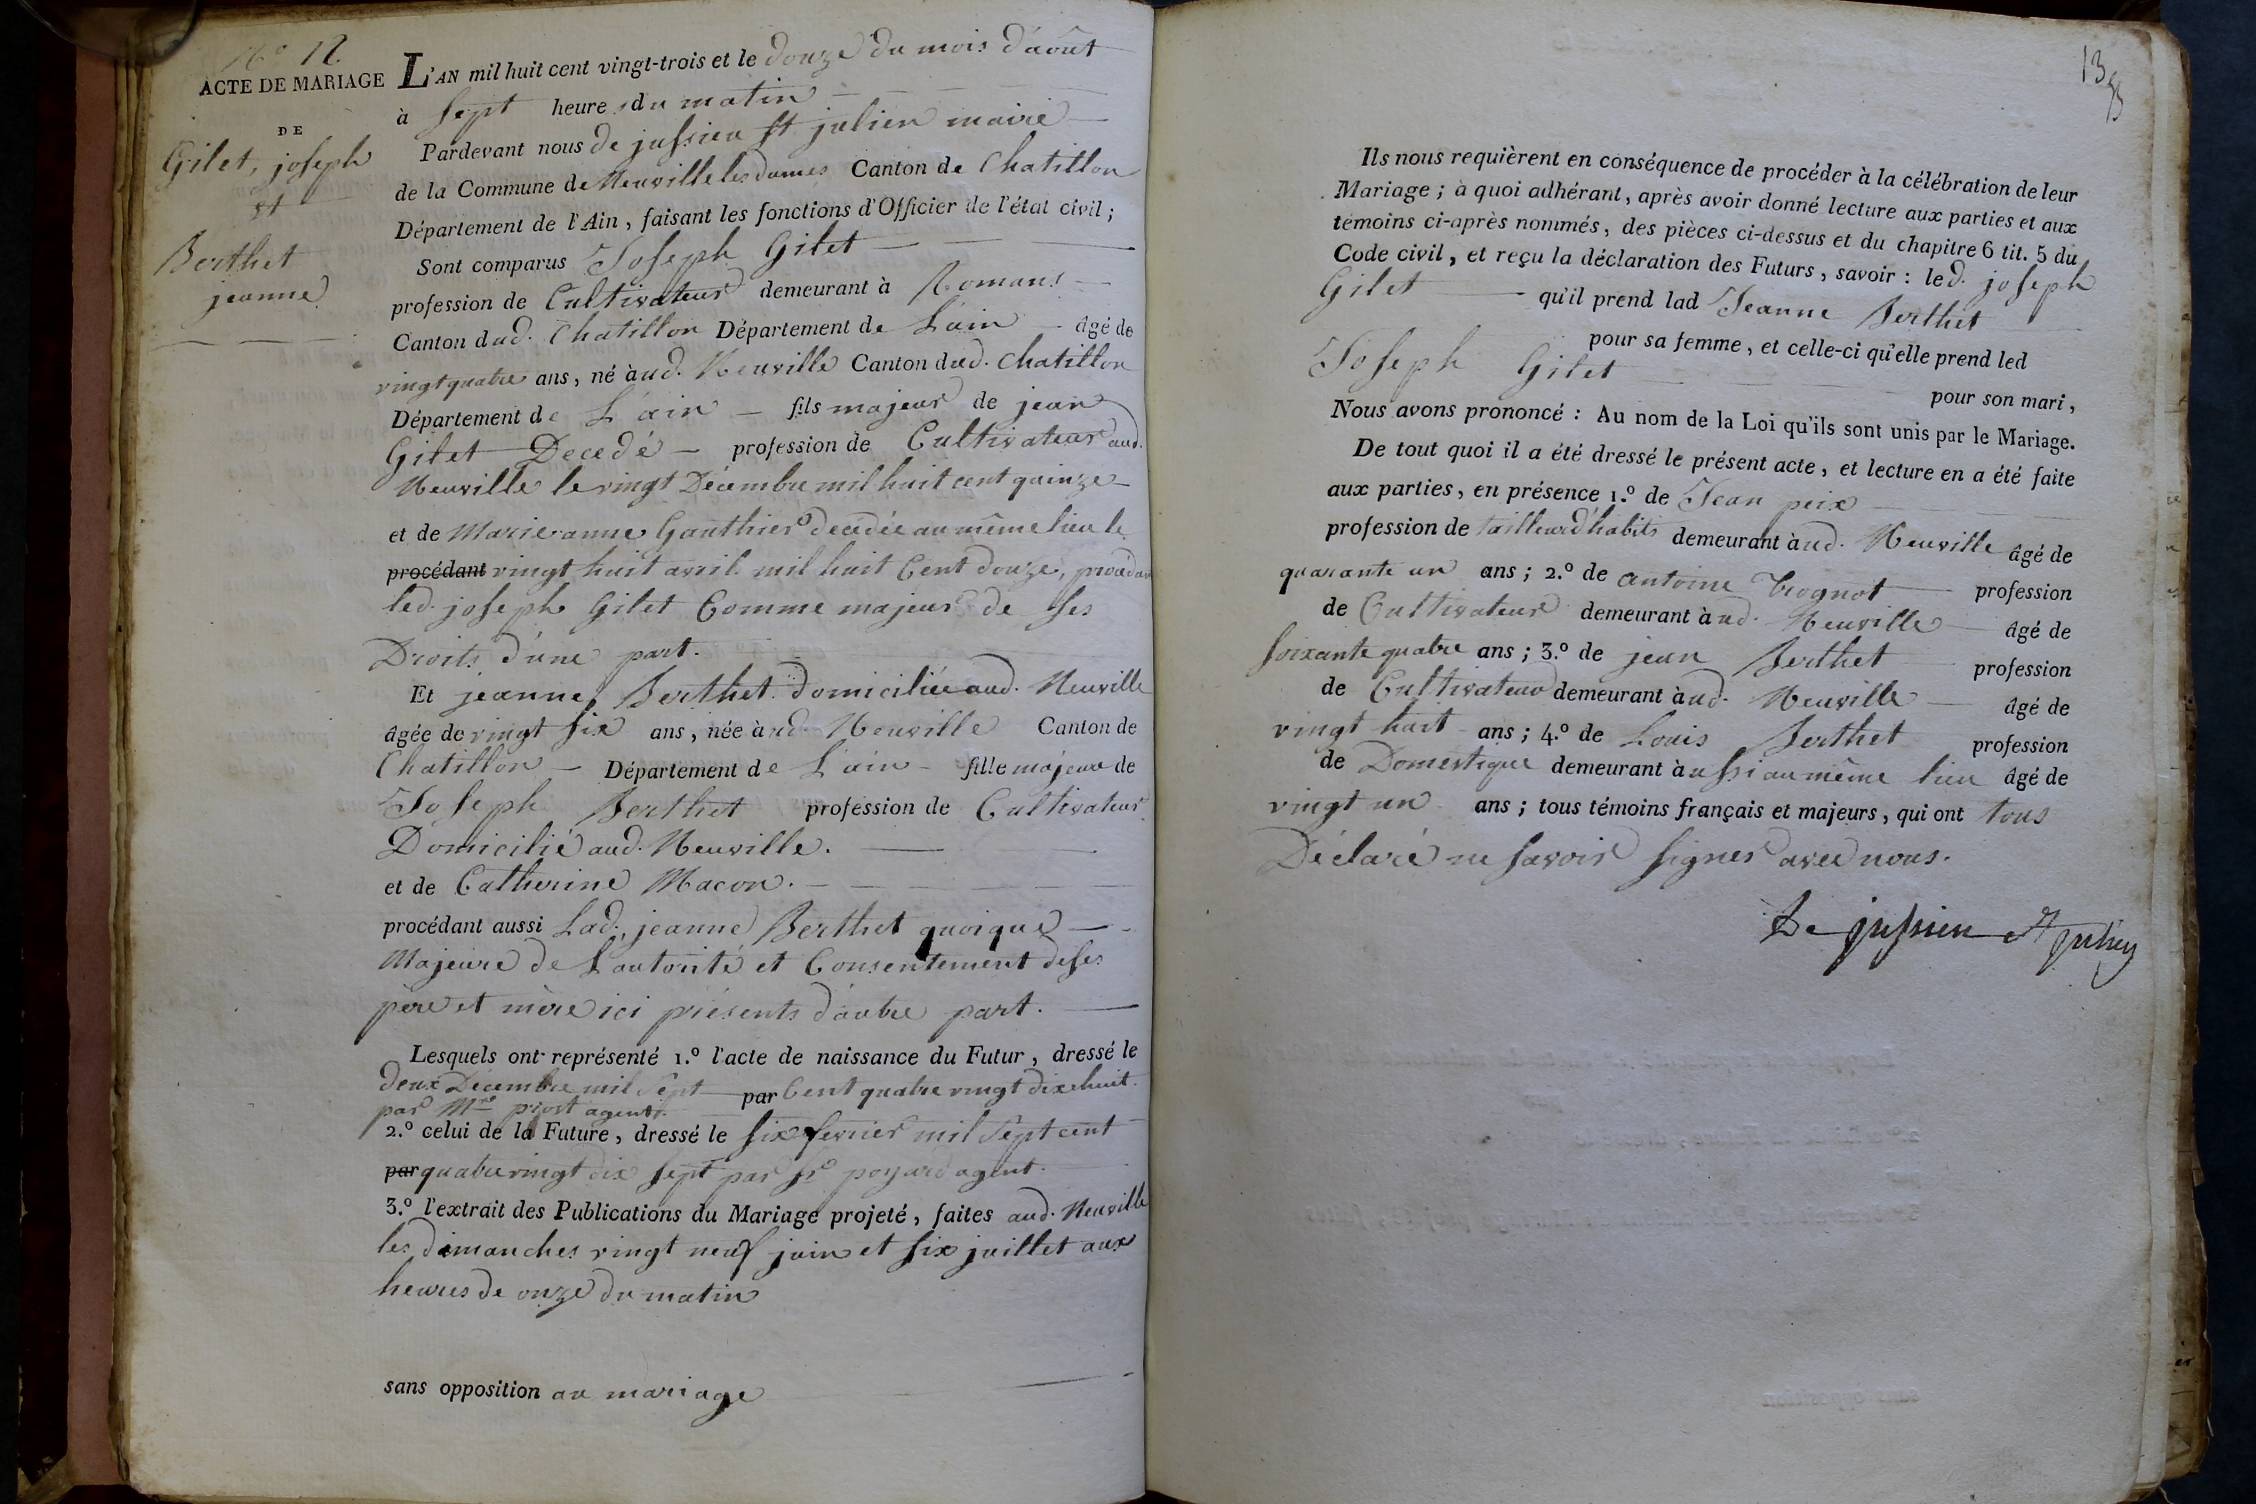 N.o 12
ACTE DE MARIAGE
DE
Gilet, joseph
et
Berthet
jeanne
L'AN mil huit cent vingt-trois et le douze du mois d'août
à sept heures du matin
Pardevant nous de jussieu St julien maire
de la Commune de Neuville les dames Canton de Chatillon
Département de l'Ain, faisant les fonctions d'Officier de l'état civil;
Sont comparus Joseph Gilet
profession de Cultivateur demeurant à Romans
Canton dud. Chatillon Département de L'ain âgé de
vingt quatre ans, né àud. Neuville Canton dud. Chatillon
Département de L'ain fils majeur de jean
Gilet Decedé profession de Cultivateur aud.
Neuville le vingt Décembre mil huit cent quinze
et de Marie anne Gauthier decedée au même lieu le
procédant vingt huit avril mil huit Cent douze, procédant
led. joseph Gilet Comme majeur de ses
Droits d'une part.
Et jeanne Berthet domiciliée aud. Neuville
âgée de vingt six ans, née àud. Neuville Canton de
Chatillon Département de L'ain fille majeure de
Joseph Berthet profession de Cultivateur
Domicilié aud. Neuville.
et de Catherine Macon.
procédant aussi Lad. jeanne Berthet quoique
Majeure de L'autorité et Consentement de ses
père et mère ici présents d'autre part.
Lesquels ont représenté 1.o l'acte de naissance du Futur, dressé le
deux Decembre mil sept par Cent quatre vingt dix huit.
par Mre priost agent.
2.o celui de la Future, dressé le six fevrier mil sept cent
par quatre vingt dix sept par Sr poyard agent.
3.o l'extrait des Publications du Mariage projeté, faites aud. Neuville
les dimanches vingt neuf juin et six juillet aux
heures de onze du matin
sans opposition au mariage
13
Ils nous requièrent en conséquence de procéder à la célébration de leur
Mariage; à quoi adhérant, après avoir donné lecture aux parties et aux
témoins ci-après nommés, des pièces ci-dessus et du chapitre 6 tit. 5 du
Code civil, et reçu la déclaration des Futurs, savoir: led. joseph
Gilet qu'il prend lad Jeanne Berthet
pour sa femme, et celle-ci qu'elle prend led
Joseph Gilet
pour son mari,
Nous avons prononcé: Au nom de la Loi qu'ils sont unis par le Mariage.
De tout quoi il a été dressé le présent acte, et lecture en a été faite
aux parties, en présence 1.o de Jean peix
profession de tailleur d'habits demeurant àud. Neuville âgé de
quarante un ans; 2.o de antoine Trognot profession
de Cultivateur demeurant àud. Neuville âgé de
soixante quatre ans; 3.o de jean Berthet profession
de Cultivateur demeurant àud. Neuville âgé de
vingt huit ans; 4.o de Louis Berthet profession
de Domestique demeurant àussi au même lieu âgé de
vingt un ans; tous témoins français et majeurs, qui ont tous
Déclaré ne savoir signer avec nous.
De jussieu St julien